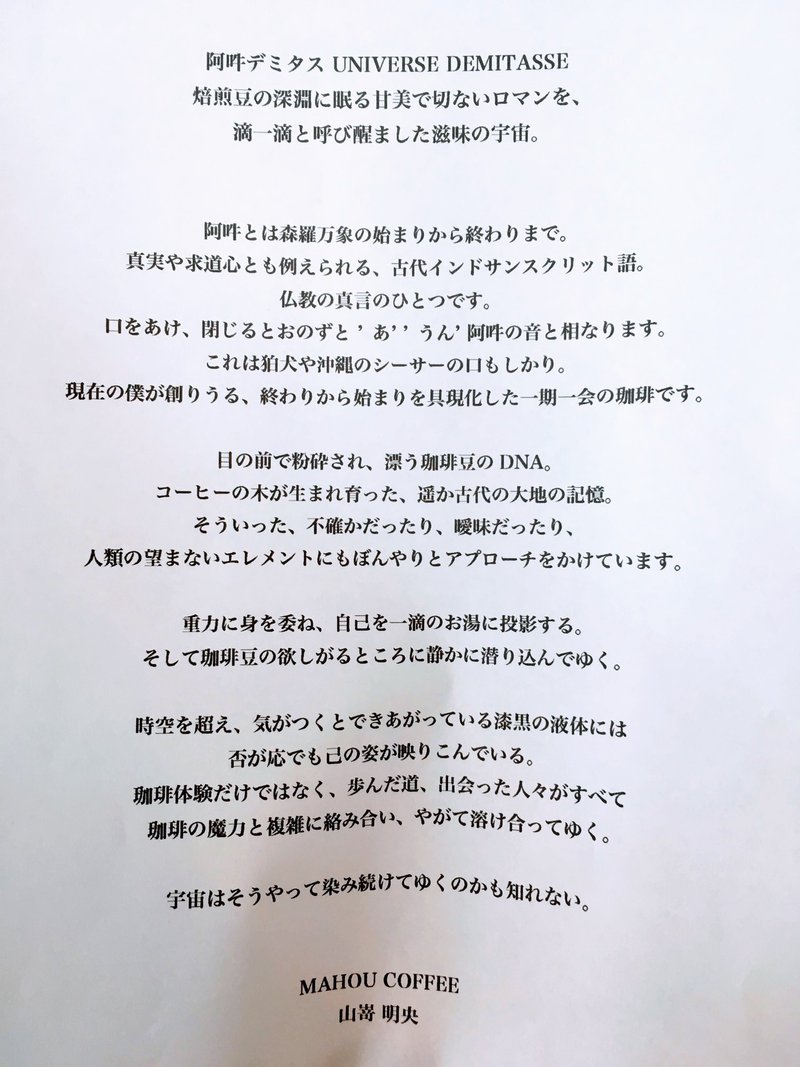 阿吽デミタス UNIVERSE DEMITASSE
焙煎豆の深淵に眠る甘美で切ないロマンを、
滴一滴と呼び醒ました滋味の宇宙。
阿吽とは森羅万象の始まりから終わりまで。
真実や求道心とも例えられる、古代インドサンスクリット語。
仏教の真言のひとつです。
口をあけ、閉じるとおのずと ’ あ’ ’ うん’ 阿吽の音と相なります。
これは狛犬や沖縄のシーサーの口もしかり。
現在の僕が創りうる、終わりから始まりを具現化した一期一会の珈琲です。
目の前で粉砕され、漂う珈琲豆の DNA。
コーヒーの木が生まれ育った、遥か古代の大地の記憶。
そういった、不確かだったり、曖昧だったり、
人類の望まないエレメントにもぼんやりとアプローチをかけています。
重力に身を委ね、自己を一滴のお湯に投影する。
そして珈琲豆の欲しがるところに静かに潜り込んでゆく。
時空を超え、気がつくとできあがっている漆黒の液体には
否が応でも己の姿が映りこんでいる。
珈琲体験だけではなく、歩んだ道、出会った人々がすべて
珈琲の魔力と複雑に絡み合い、やがて溶け合ってゆく。
宇宙はそうやって染み続けてゆくのかも知れない。
MAHOU COFFEE
山嵜 明央